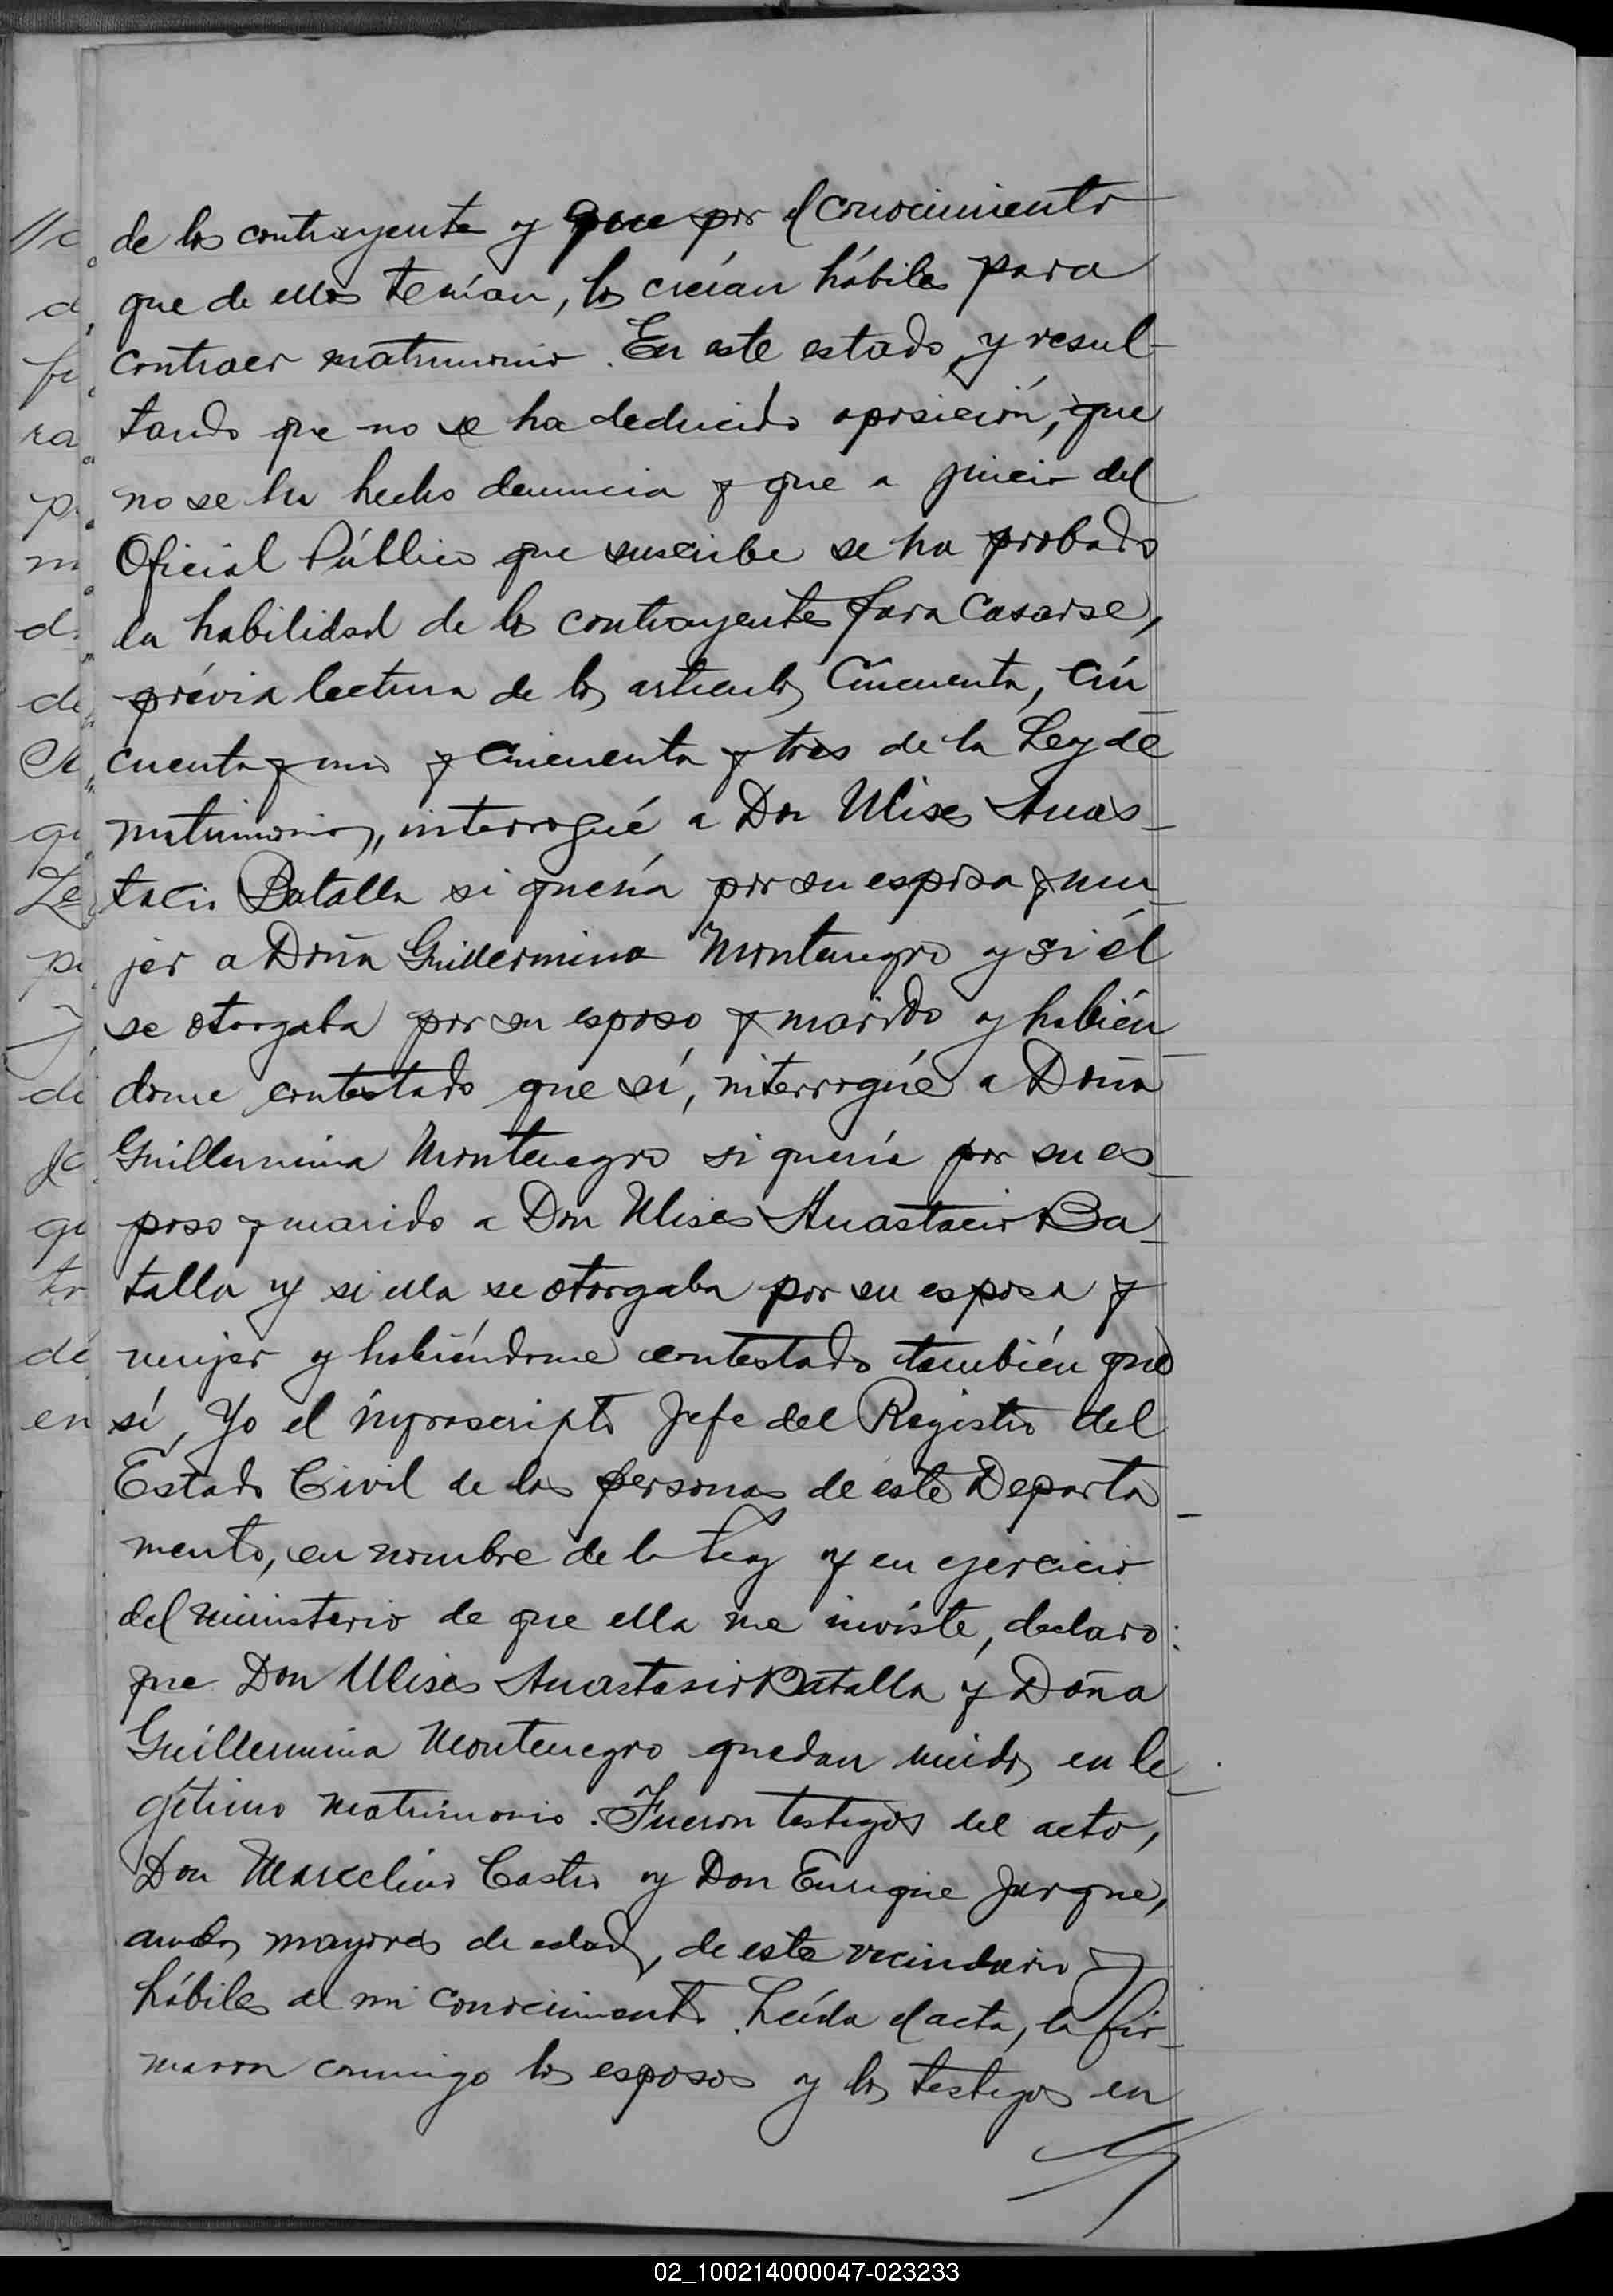 de los contrayentes y que por el conocimiento
que de ellos tenían, los creían hábiles para
contraer matrimonio. En este estado y resul-
tando que no se ha deducido oposición, que
no se ha hecho denuncia y que a juicio del
Oficial Público que suscribe se ha probado
la habilidad de los contrayentes para casarse,
prévia lectura de los artículos Cincuenta, Cin
cuenta y uno y Cincuenta y tres de la Ley de
matrimonio, interrogué a Don Ulises Anas-
tacio Batalla si quería por su esposa y mu-
jer a Doña Guillermina Montenegro y si él
se otorgaba por su esposo y marido y habién
dome contestado que sí, interrogué a Doña
Guillermina Montenegro si quería por su es-
poso y marido a Don Ulises Anastacio Ba-
talla y si ella se otorgaba por su esposa y
mujer y habiéndome contestado también que
sí, Yo el infrascripto Jefe del Registro del
Estado Civil de las personas de este Departa-
mento, en nombre de la Ley y en ejercicio
del ministerio de que ella me inviste, declaro:
que Don Ulises Anastasio Batalla y Doña
Guillermina Montenegro quedan unidos en le-
gítimo matrimonio. Fueron testigos del acto,
Don Marcelino Castro y Don Enrique Jurgue,
ambos mayores de edad, de este vecindario y
hábiles de mi conocimiento. Leída el acta, la fir-
maron conmigo los esposos y los testigos en
02_100214000047-023233